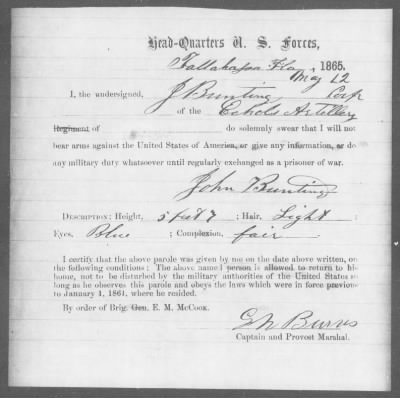 Head-Quarters U. S. Forces,
Tallahassa Fla, May 12 1865.
I, the undersigned, J Bunting Corp
of the Echols Artillery
Regiment of do solemnly swear that I will not
bear arms against the United States of America, or give any information, or do
any military duty whatsoever until regularly exchanged as a prisoner of war.
John Bunting
DESCRIPTION: Height, 5 feet 7 ; Hair, Light ;
Eyes, Blue ; Complexion, fair
I certify that the above parole was given by me on the date above written, on
the following conditions: The above named person is allowed to return to his
home, not to be disturbed by the military authorities of the United States so
long as he observes this parole and obeys the laws which were in force previous
to January 1, 1861, where he resided.
By order of Brig. Gen. E. M. McCook.
Burns
Captain and Provost Marshal.